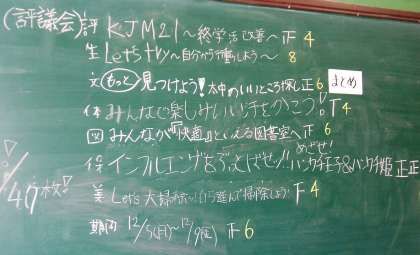 (評議会)評 KJM21〜終学活改善〜 正 4
生 Let's try〜自分から行動しよう〜 8
文 もっと見つけよう!太中のいいところ探し 正 6 まとめ
体 みんなで楽しみいい汗をかこう! 下 4
図 みんなが『快適』といえる図書室へ 正 6
めざせ!
保 インフルエンザをぶっとばせッ!! ハンカチ王子&ハンカチ姫 正正
美 Let's 大掃除〜自ら進んで掃除しよう! 下 4
期間 12/5(月)〜12/9(金) 下 6
!/40枚!